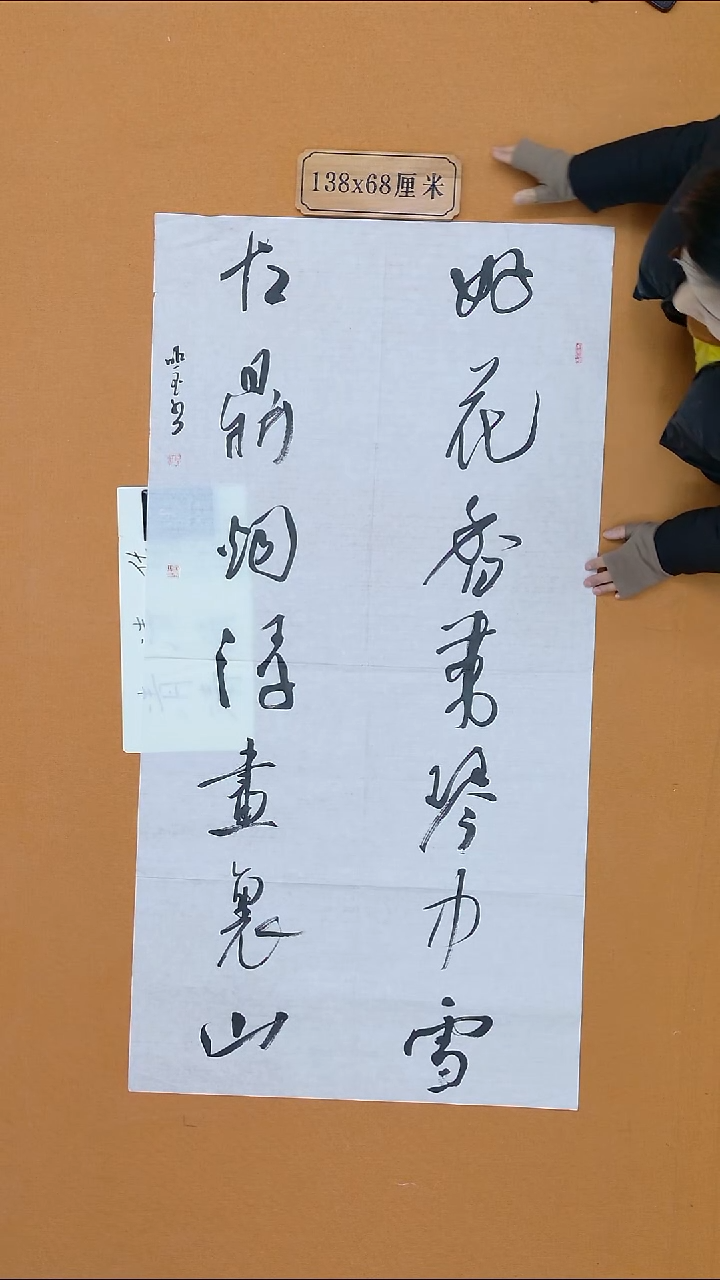 138x68厘米
好花香書琴中雪
古鼎烟浮畫裏山